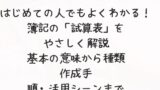 はじめての人でもよくわかる！
簿記の「試算表」を
やさしく解説
基本の意味から種類
作成手
順・活用シーンまで